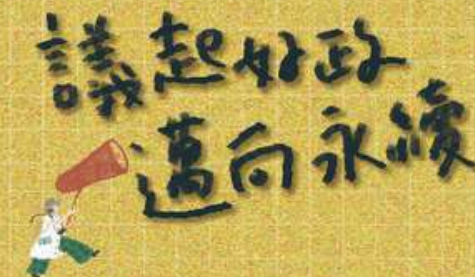 議起好政
邁向永續